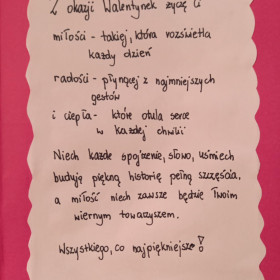 Z okazji Walentynek życzę Ci
miłości - takiej, która rozświetla
każdy dzień
radości - płynącej z najmniejszych
gestów
i ciepła - które otula serce
w każdej chwili
Niech każde spojrzenie, słowo, uśmiech
budują piękną historię pełną szczęścia,
a miłość niech zawsze będzie Twoim
wiernym towarzyszem.
Wszystkiego, co najpiękniejsze!